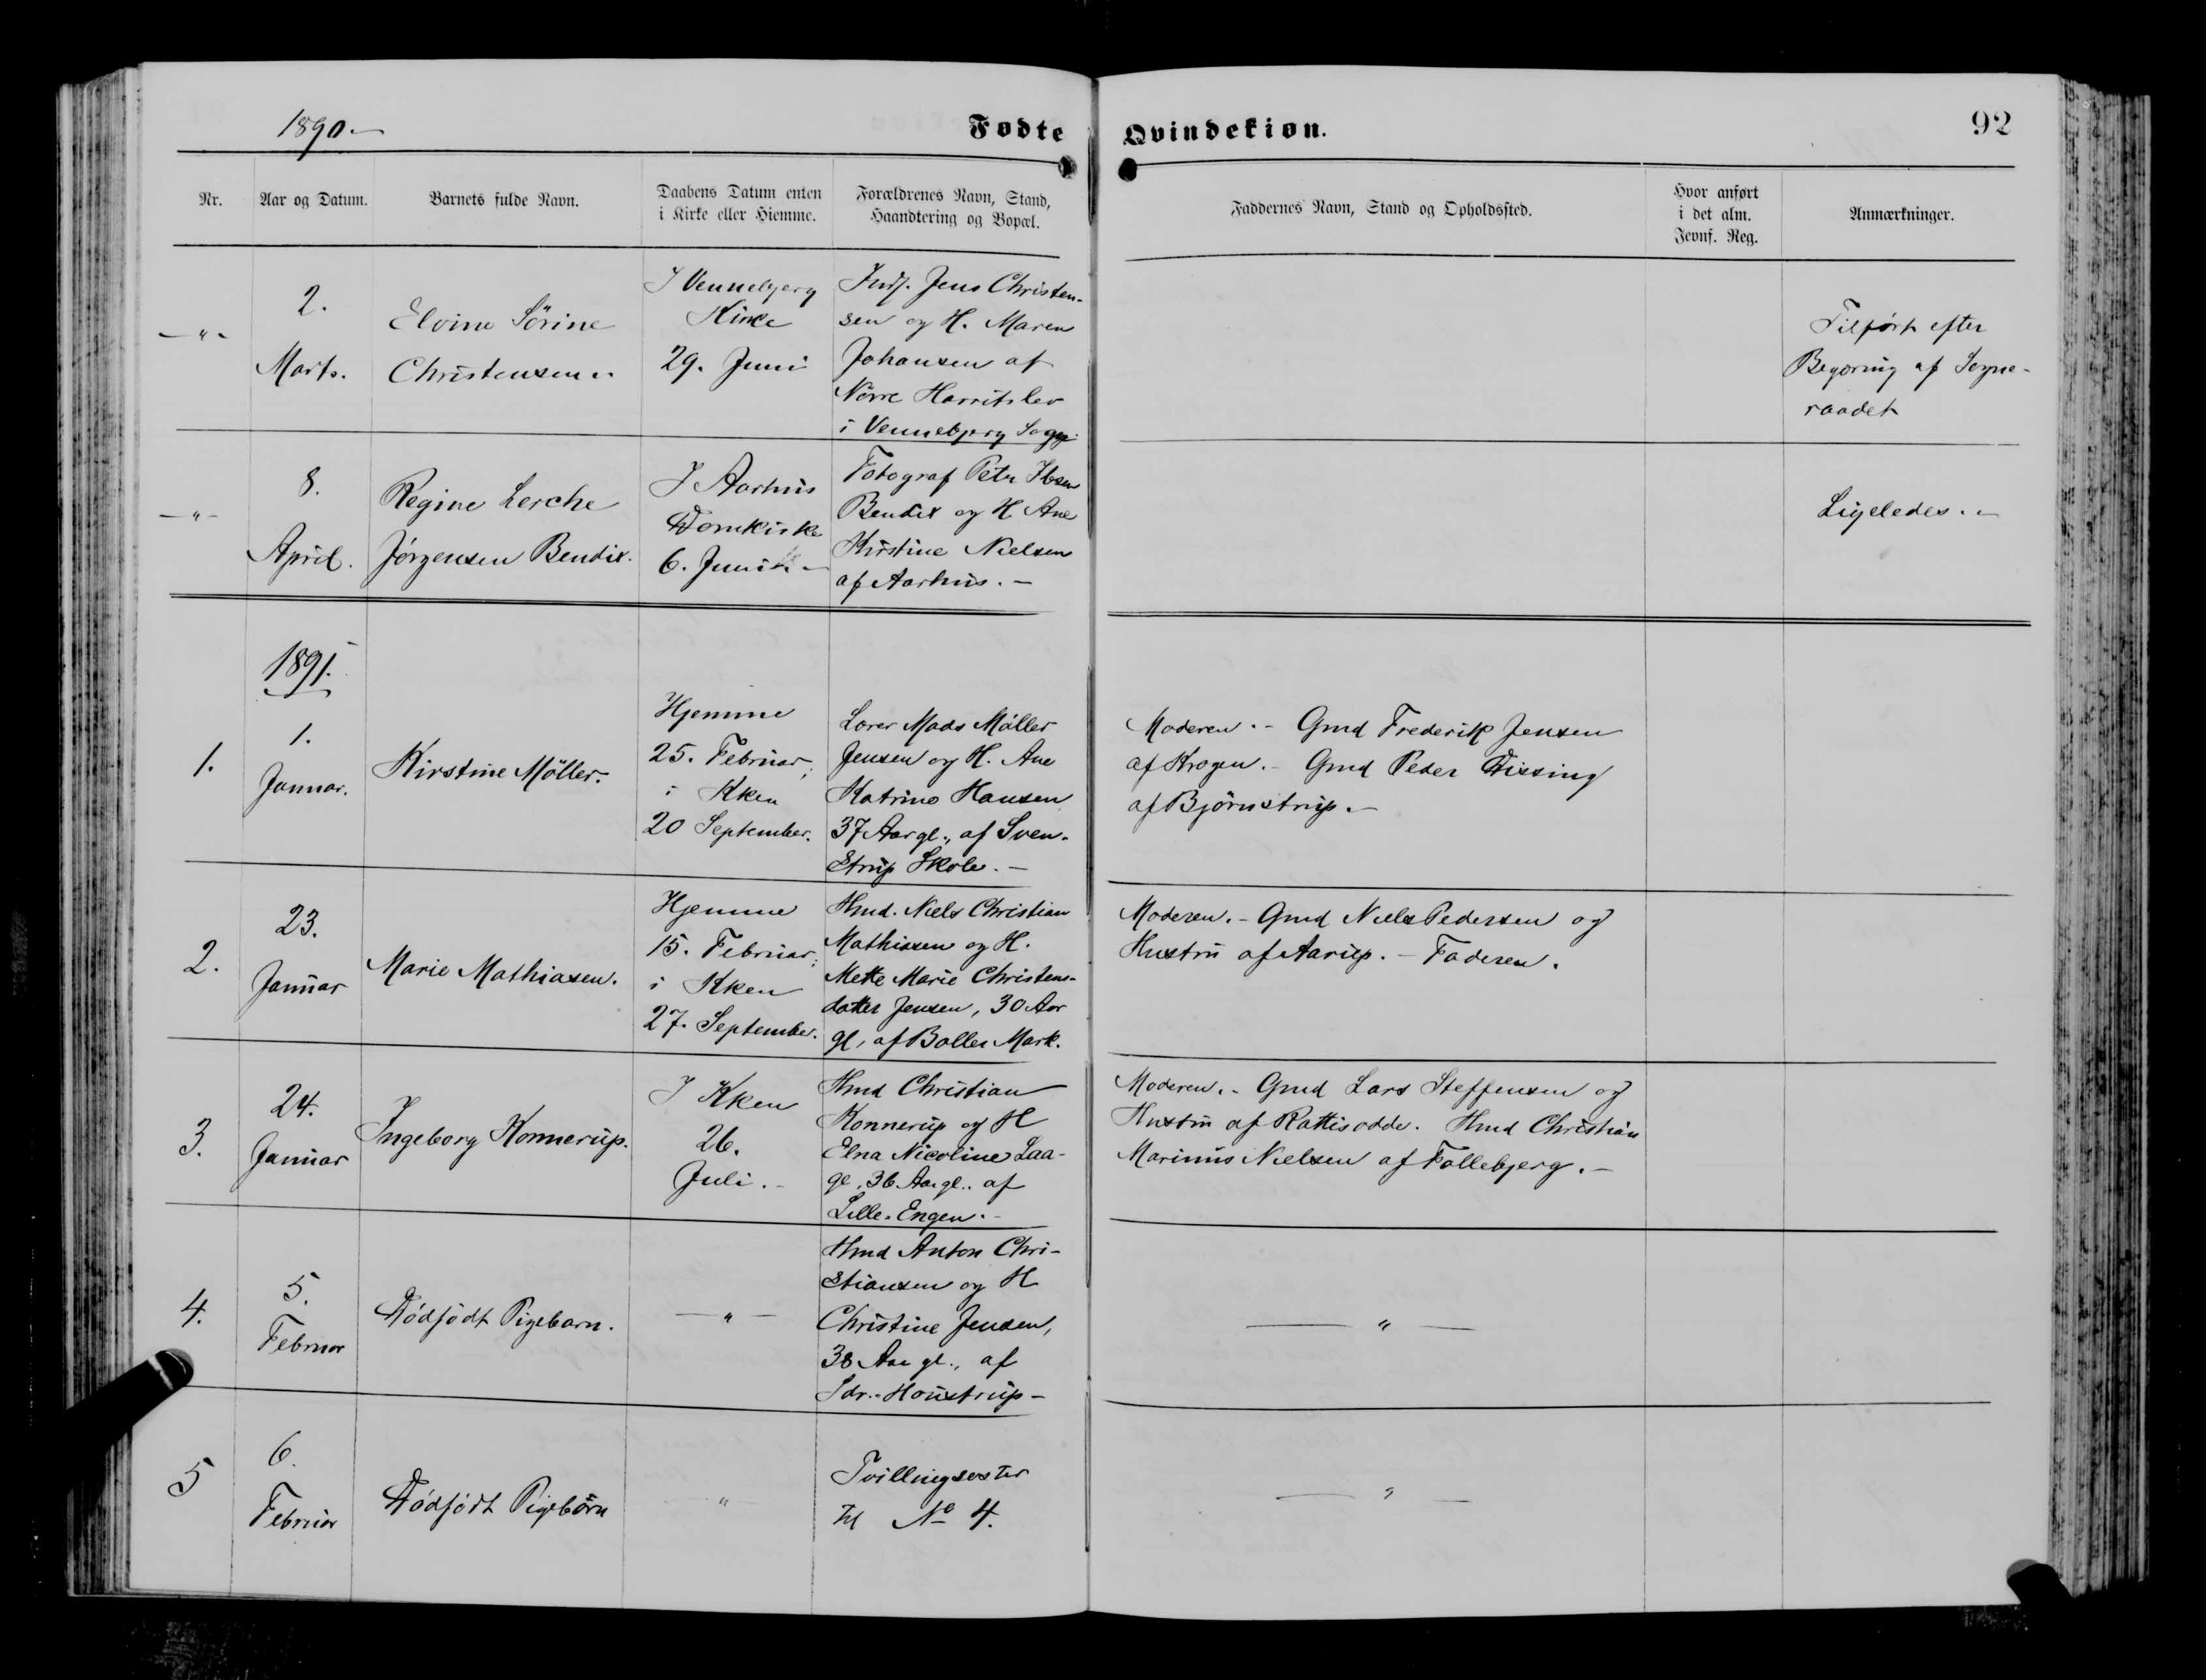 1890.—
Fødte Qvindekiøn.
92
Nr.
Aar og Datum.
Barnets fulde Navn.
Daabens Datum enten
i Kirke eller Hiemme.
Forældrenes Navn, Stand,
Haandtering og Bopæl.
Faddernes Navn, Stand og Opholdssted.
Hvor anført
i det alm.
Jevnf. Reg.
Anmærkninger.
—"—
2.
Marts.
Elvine Sörine
Christensen.
I Vennebjerg
Kirke
29. Juni
Inds. Jens Christen-
sen og H. Maren
Johansen af
Nörre Harritslev
i Vennebjerg Sogn
Tilført efter
Begæring af Sogne-
raadet
—"—
8.
April.
Regine Lerche
Jørgensen Bendix.
I Aarhus
Domkirke
6. Juni
Fotograf Peter Ibsen
Bendix og H. Ane
Kirstine Nielsen
af Aarhus.—
Ligeledes.—
1891.
1.
1.
Januar.
Kirstine Möller.
Hjemme
25. Februar;
i Kken
20 September.
Lærer Mads Möller
Jensen og H. Ane
Katrine Hansen
37 Aar gl., af Sven-
strup Skole.—
Moderen.— Gmd Frederik Jensen
af Krogen.— Gmd Peder Dissing
af Björnstrup.—
2.
23.
Januar
Marie Mathiasen.
Hjemme
15. Februar;
i Kken
27. September.
Hmd. Niels Christian
Mathiasen og H.
Mette Marie Christens-
datter Jensen, 30 Aar
gl, af Boller Mark.
Moderen.— Gmd Niels Pedersen og
Hustru af Aarup.— Faderen.
3.
24.
Januar
Ingeborg Konnerup.
I Kken
26.
Juli.—
Hmd Christian
Konnerup og H
Elna Nicoline Laa-
ge, 36 Aar gl. af
Lille-Engen.—
Moderen.— Gmd Lars Steffensen og
Hustru af Rattisodde. Hmd Christian
Marinus Nielsen af Follebjerg.—
4.
5.
Februar
Dödfödt Pigebarn.
—"—
Hmd Anton Chri-
stiansen og H
Christine Jensen,
38 Aar gl., af
Sdr.-Houstrup—
—"—
5
6.
Februar
Dödfödt Pigebarn
—"—
Tvillingsöster
til No 4.
—"—